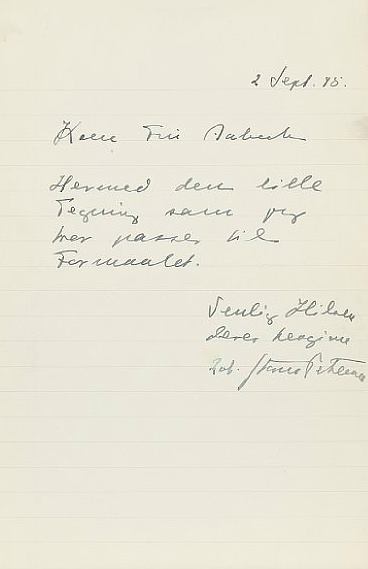 2 Sept. 45.
Kære Fru
Hermed den lille
Tegning som jeg
tror passer til
Formaalet.
Venlig Hilsen
Deres hengivne
Rob. Storm Petersen